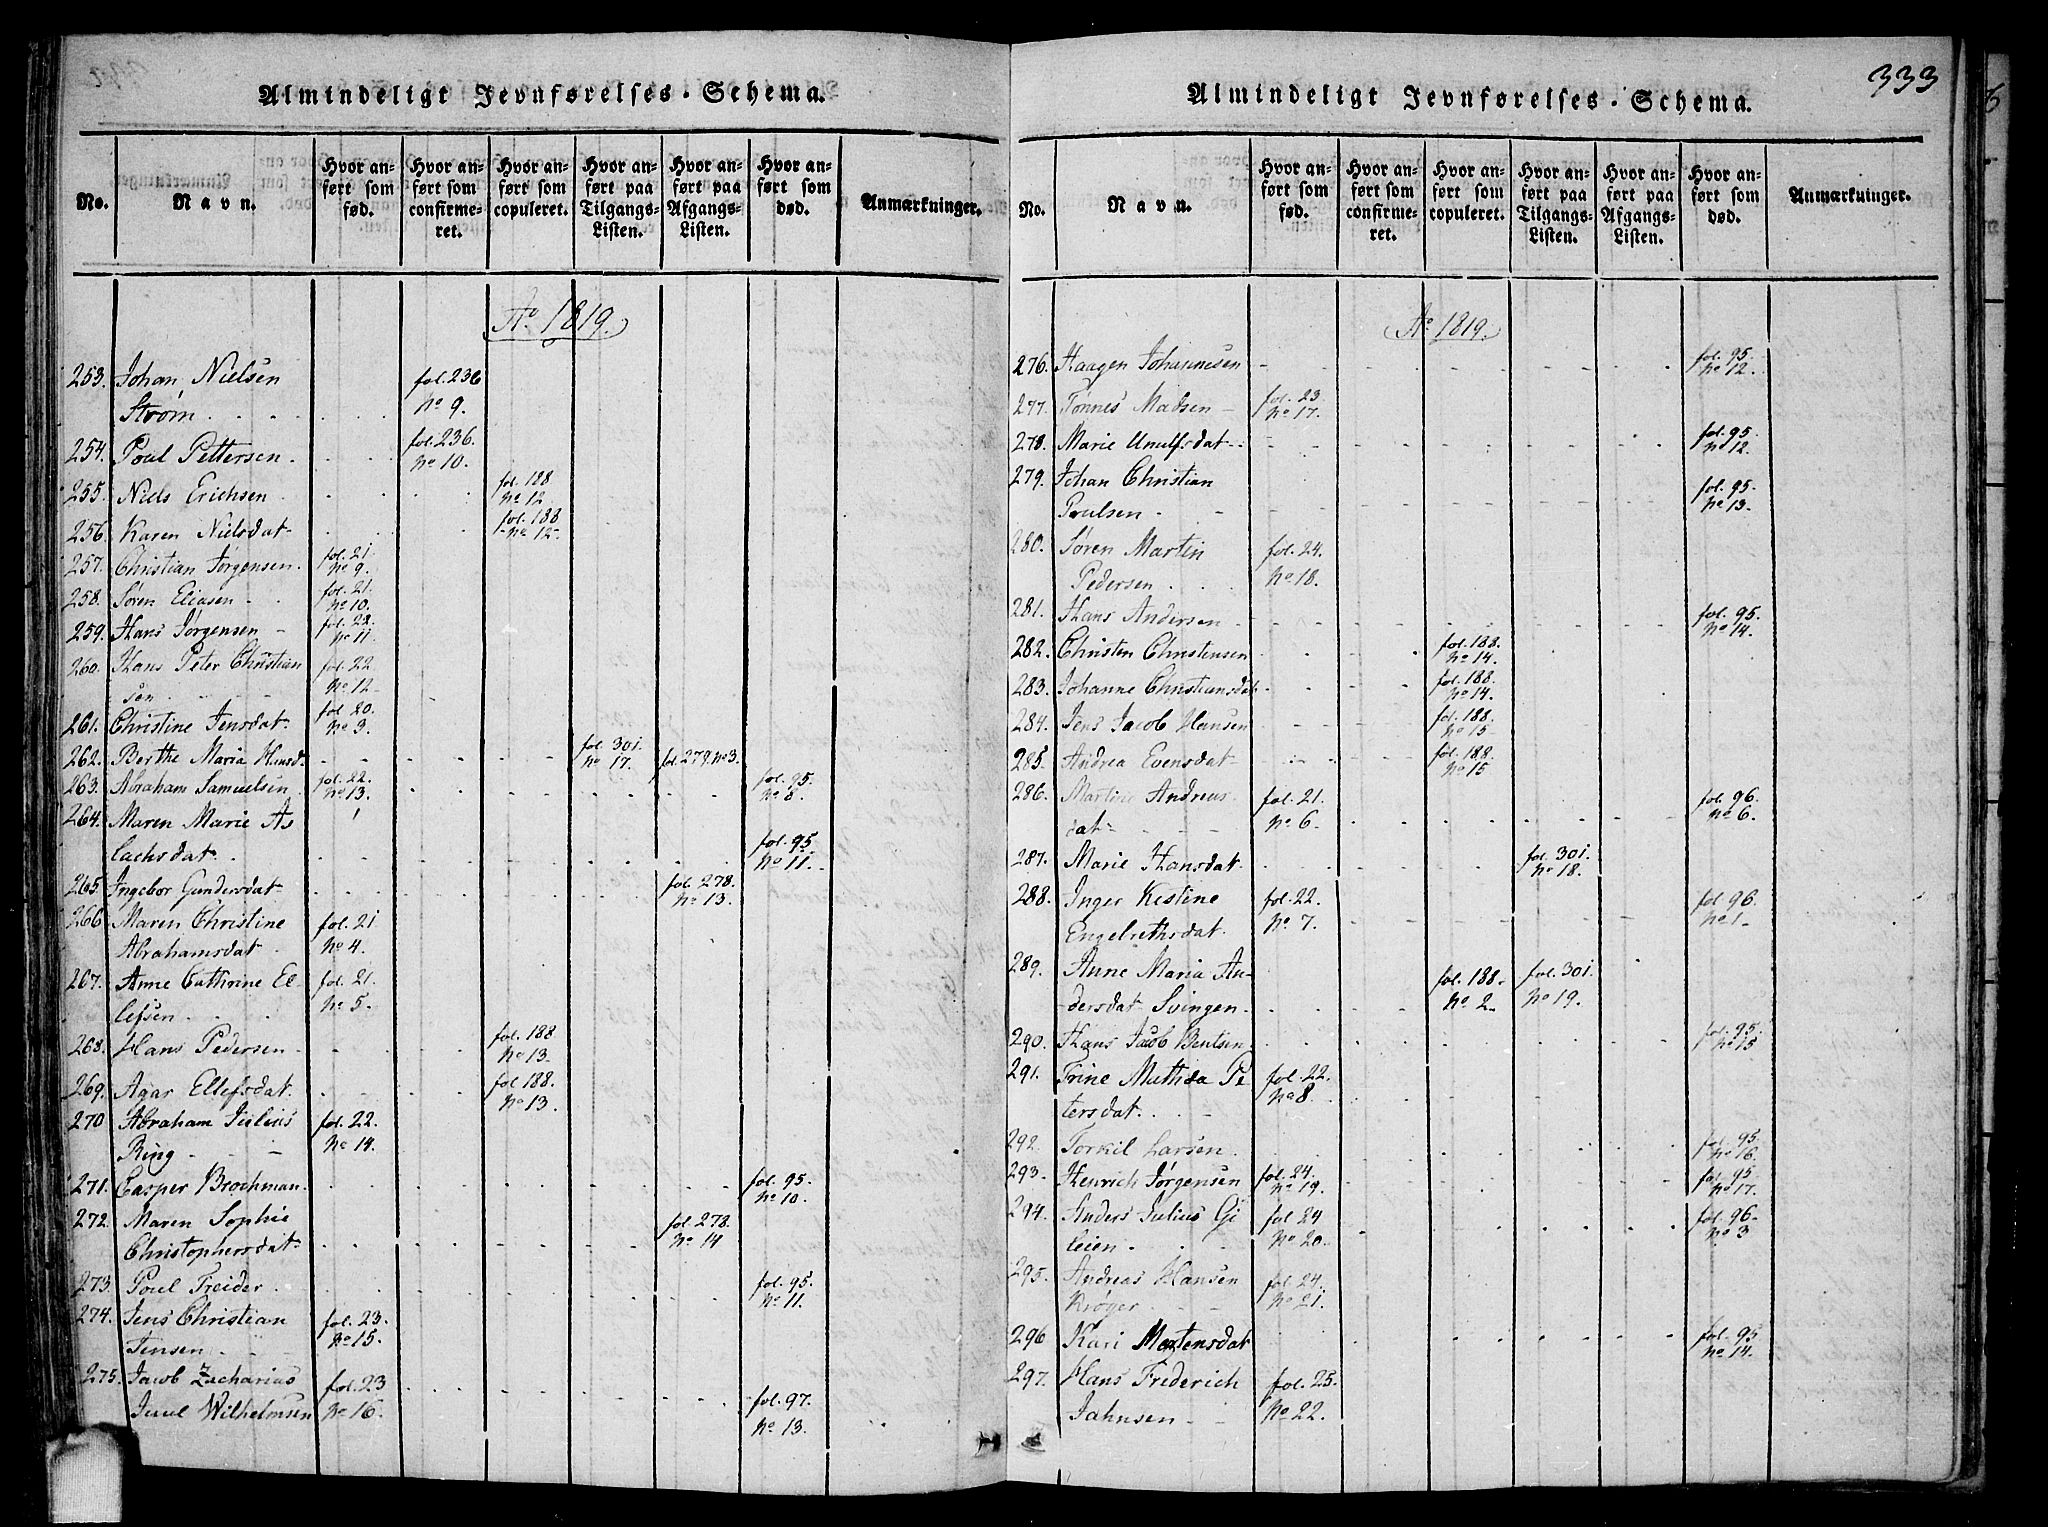 Almindeligt Jevnførelses-Schema.
No.
Navn.
Hvor an-
ført som
fød.
Hvor an-
ført som
confirme-
ret.
Hvor an-
ført som
copuleret.
Hvor an-
ført paa
Tilgangs-
Listen.
Hvor an-
ført paa
Afgangs-
Listen.
Hvor an-
ført som
død.
Anmærkninger.
Ao 1819.
253. Johan Nielsen fol. 236
Strøm No 9.
254. Poul Pettersen fol. 236. No 10.
255. Niels Erichsen fol. 188 No 12
256. Karen Nielsdat fol. 188 No 12
257. Christian Jørgensen fol. 21. No 9.
258. Søren Eliasen fol. 21. No 10.
259. Hans Jørgensen fol. 22. No 11.
260. Hans Peter Christian fol. 22
sen No 12
261. Christine Jensdat fol. 20. No 3.
262. Berthe Maria Hansd. fol. 301. No 17. fol. 279. No 3.
263. Abraham Samuelsen fol. 22. No 13. fol. 95. No 8.
264. Maren Marie As
lachsdat fol. 95. No 11.
265. Ingebor Gundersdat fol. 278. No 13.
266. Maren Christine fol. 21
Abrahamsdat No 4.
267. Anne Cathrine El fol. 21.
lefsen No 5.
268. Hans Pedersen fol. 188 No 13
269. Agar Ellefsdat fol. 188. No 13.
270 Abraham Julius fol. 22.
Ring No 14.
271. Casper Brochman fol. 95. No 10.
272. Maren Sophie fol. 278.
Christophersdat No 14
273. Poul Treider fol. 95. No 11.
274. Jens Christian fol. 23.
Jensen No 15.
275. Jacob Zacharias fol. 23
Juul Wilhelmsen No 16. fol. 97. No 13.
333
Almindeligt Jevnførelses-Schema.
No.
Navn.
Hvor an-
ført som
fød.
Hvor an-
ført som
confirme-
ret.
Hvor an-
ført som
copuleret.
Hvor an-
ført paa
Tilgangs-
Listen.
Hvor an-
ført paa
Afgangs-
Listen.
Hvor an-
ført som
død.
Anmærkninger.
Ao 1819.
276. Haagen Johannesen fol. 95. No 12.
277. Tønnes Madsen fol. 23 No 17.
278. Marie Unulfsdat fol. 95. No 12.
279. Johan Christian
Poulsen fol. 95. No 13.
280. Søren Martin fol. 24.
Pedersen No 18.
281. Hans Andersen fol. 95. No 14.
282. Christen Christensen fol. 188. No 14.
283. Johanne Christiansdat fol. 188. No 14.
284. Jens Jacob Hansen fol. 188. No 15
285. Andrea Evensdat fol. 188. No 15
286. Martine Andreas fol. 21. fol. 96.
dat No 6. No 6.
287. Marie Hansdat fol. 301. No 18.
288. Inger Kistine fol. 22. fol. 96.
Engelrethsdat No 7. No 1
289. Anne Maria An- fol. 188. fol. 301.
dersdat Svingen No 2. No 19.
290. Hans Jacob Bentsen fol. 95. No 15
291. Trine Mathea Pe fol. 22.
tersdat No 8.
292. Torkil Larsen fol. 95. No 16.
293. Henrich Jørgensen fol. 24. No 19. fol. 95 No 17.
294. Anders Julius Gi fol. 24 fol. 96
leien No 20. No 3
295. Andreas Hansen fol. 24.
Krøger No 21.
296 Kari Mortensdat fol. 95 No 14.
297. Hans Frederich fol. 25.
Jahnsen No 22.